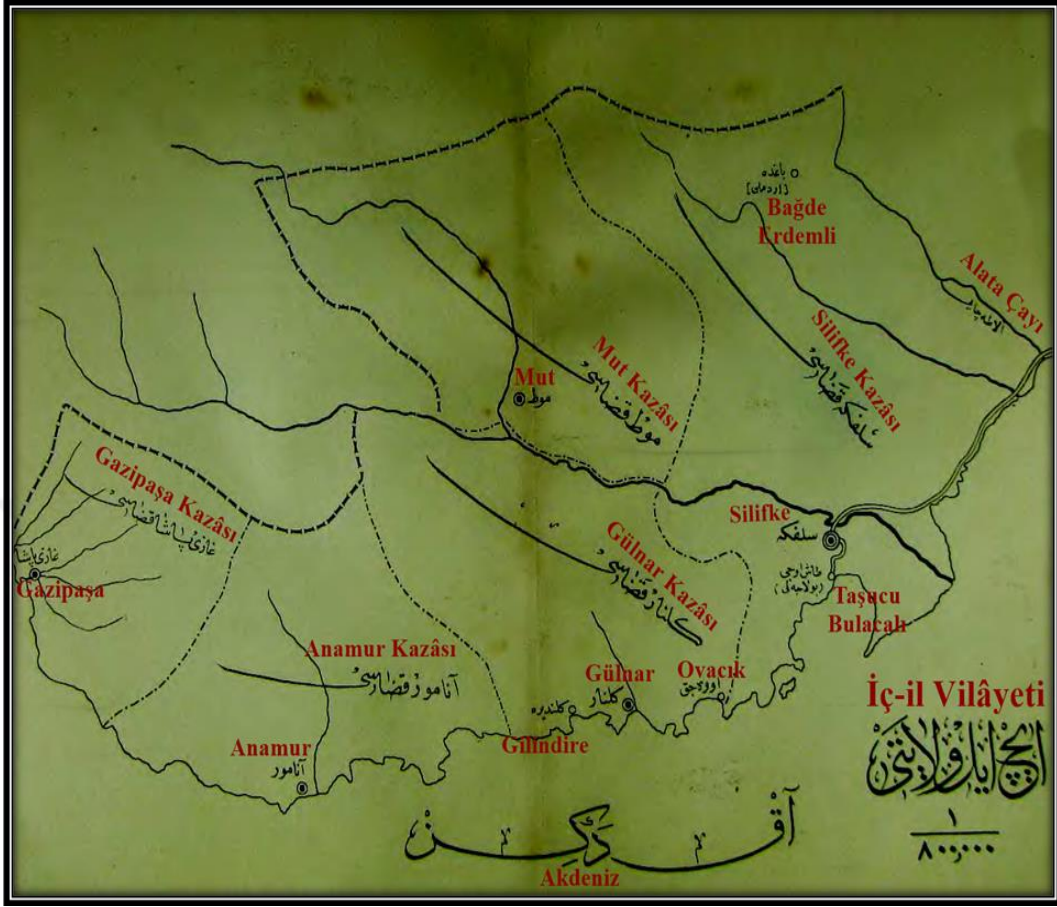 باغده
[اردملی]
Bağde
Erdemli
Alata Çayı
الاطه چایی
Silifke Kazâsı
سلفكه قضاسی
Mut Kazâsı
موط قضاسی
Mut
موط
Gazipaşa Kazâsı
غازی پاشا قضاسی
غازی پاشا
Gazipaşa
Gülnar Kazâsı
كلنار قضاسی
Silifke
سلفكه
طاش اوجی
Taşucu
Bulacalı
Anamur Kazâsı
آنامور قضاسی
Gülnar
كلنار
Ovacık
اووه‌جق
كلندیره
Gilindire
Anamur
آنامور
İç-il Vilâyeti
ایچ ایل ولایتی
١
٨٠٠,٠٠٠
آق دكز
Akdeniz